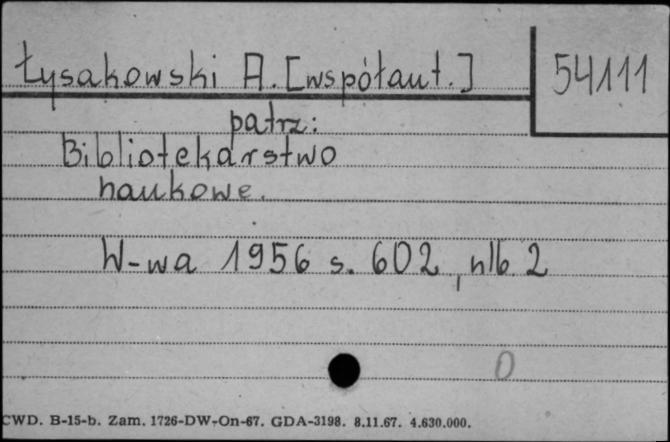 Łysakowski A. [współaut.]
54111
patrz:
Bibliotekarstwo
naukowe.
W-wa 1956 s. 602, nlb 2
0
CWD. B-15-b. Zam. 1726-DW-On-67. GDA-3198. 8.11.67. 4.630.000.